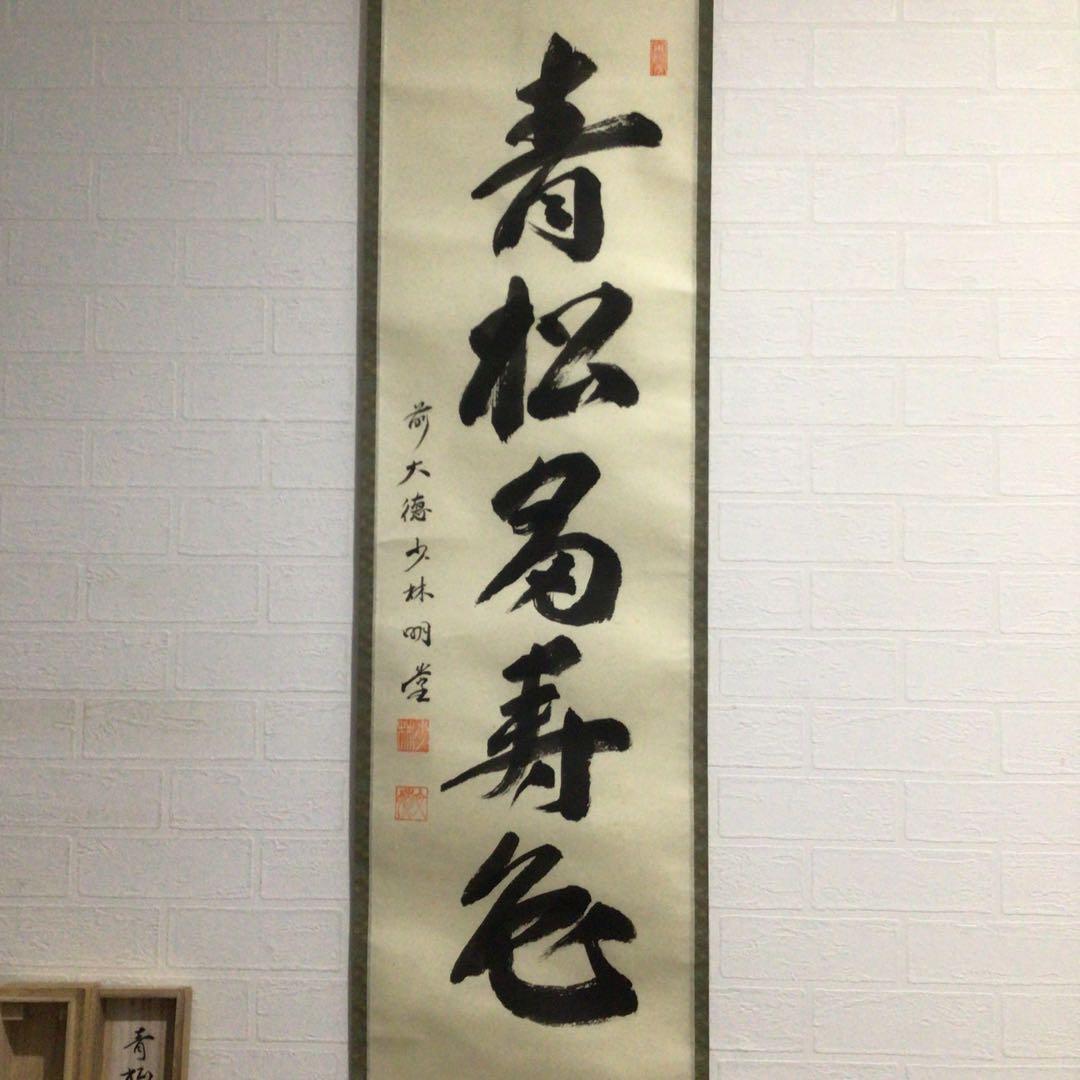 青松多寿色
前大徳少林明堂
青松